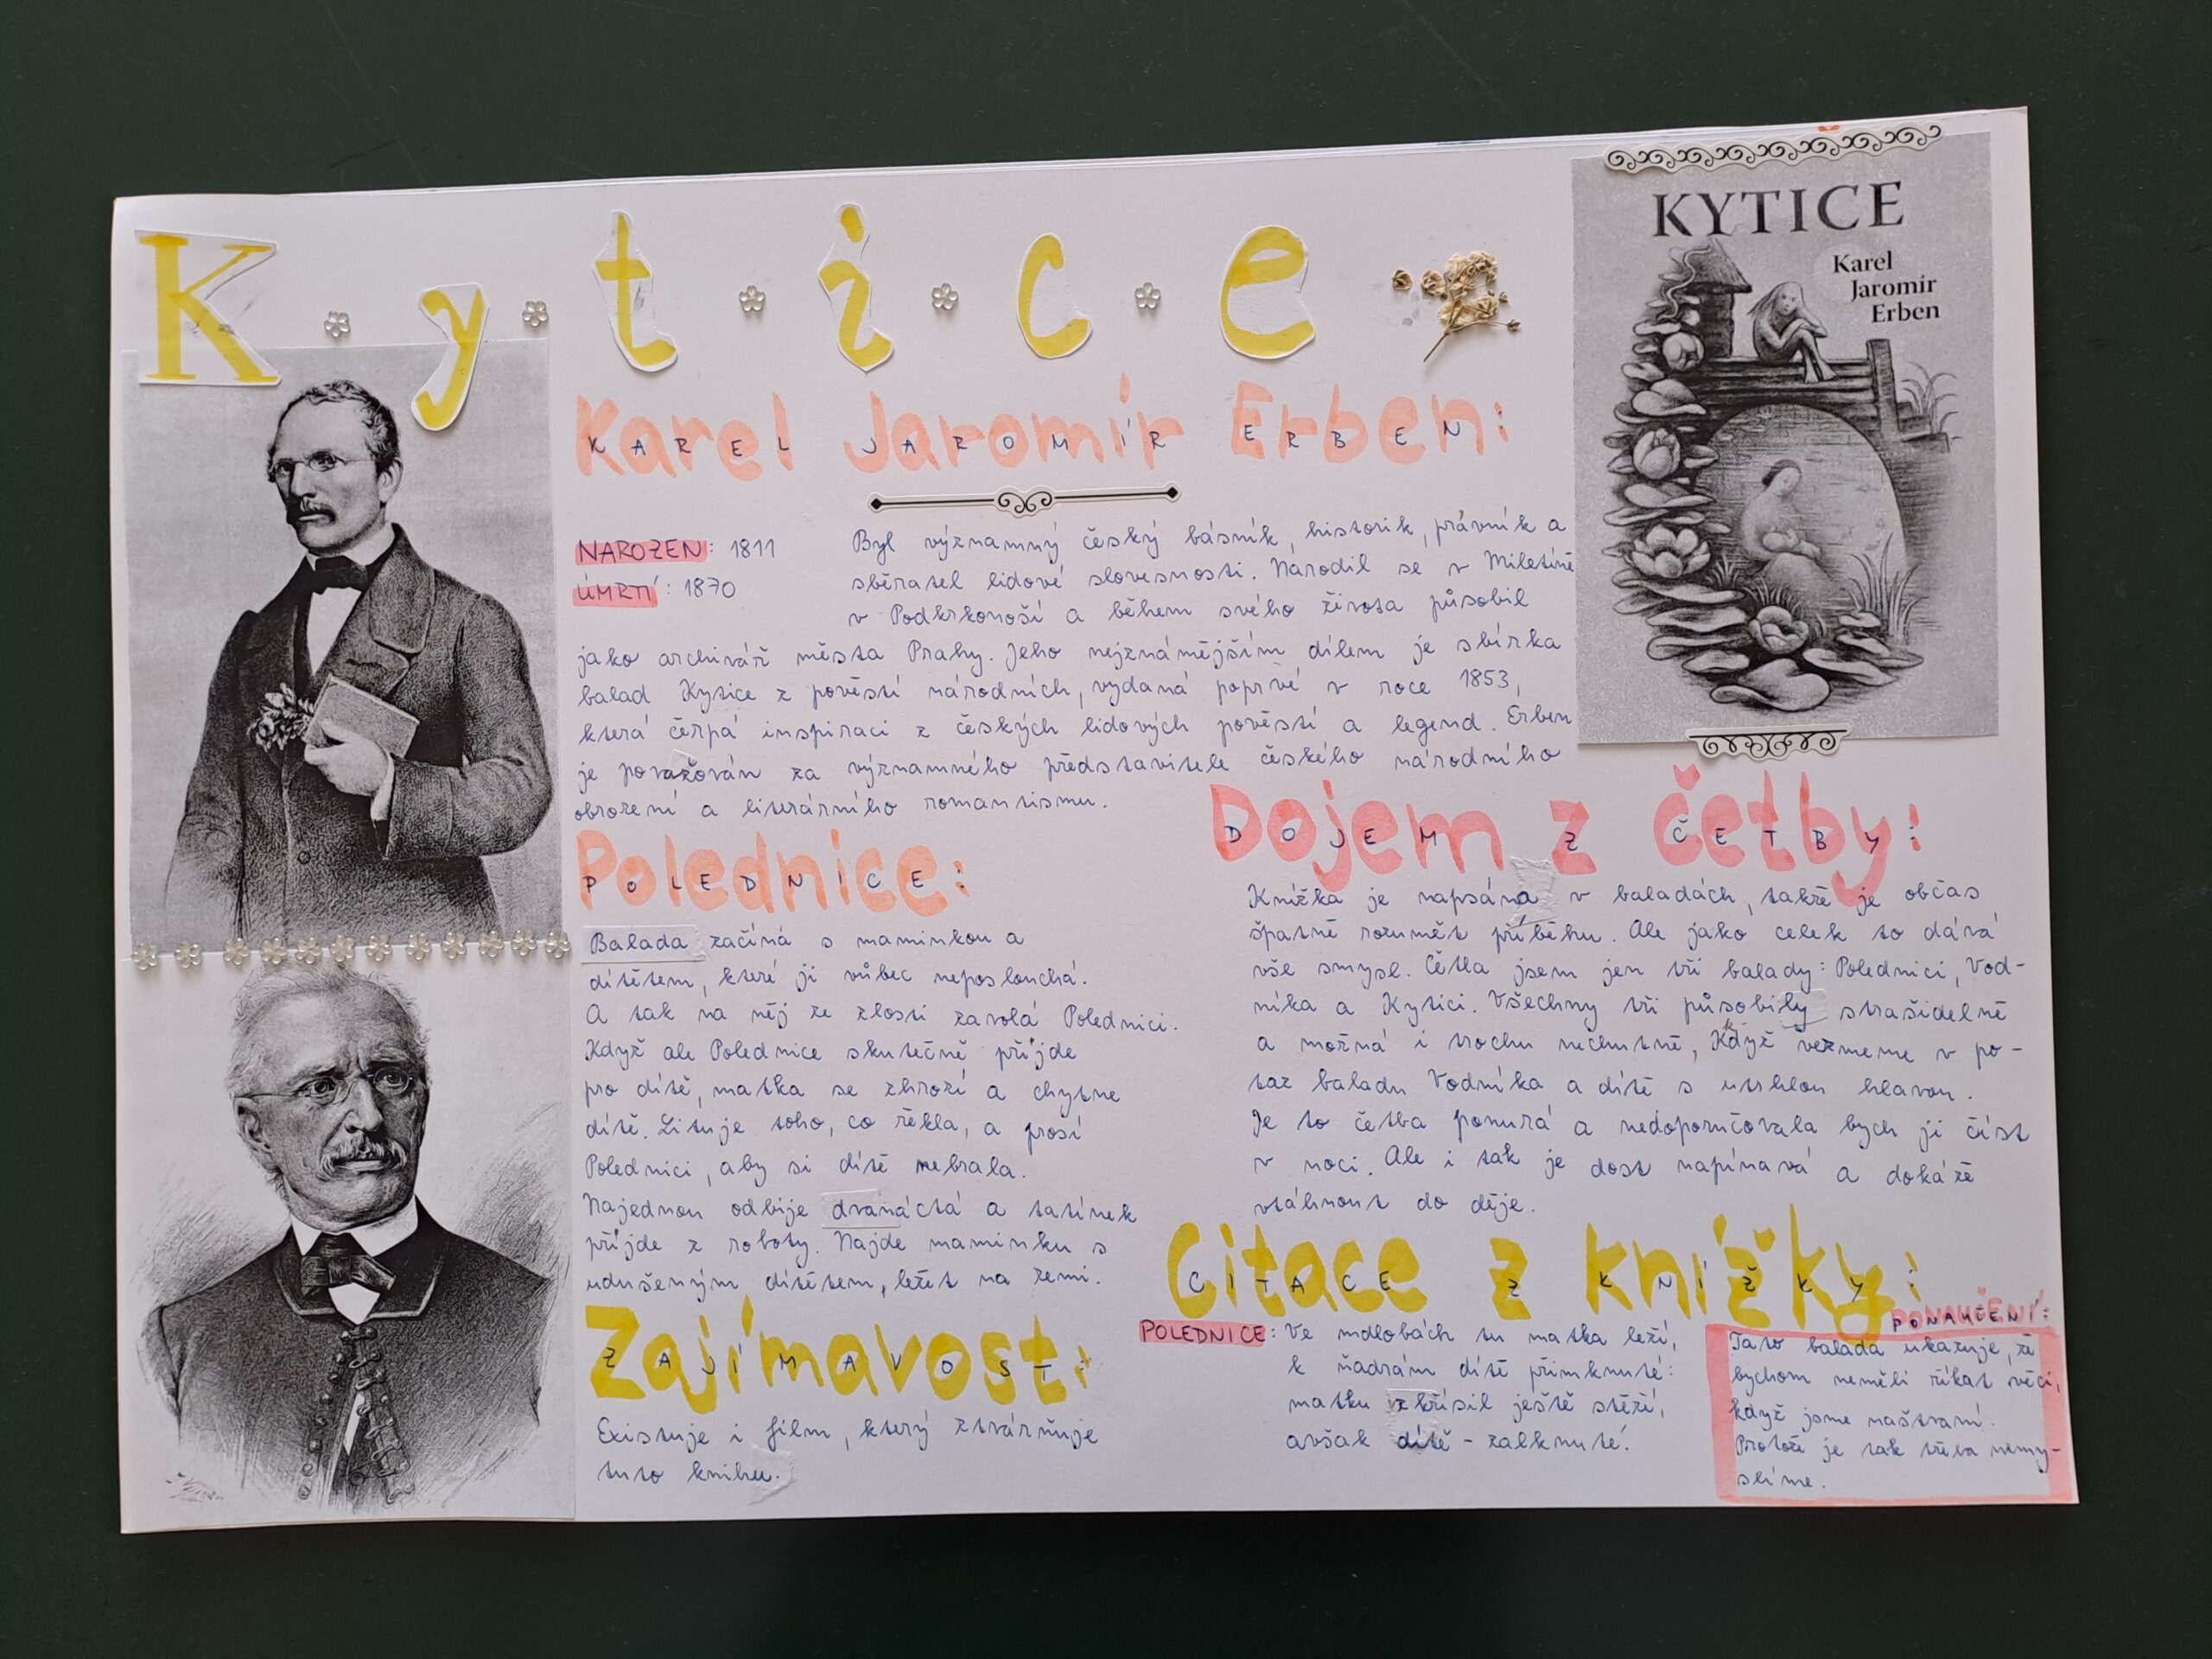 Kytice
KYTICE
Karel
Jaromír
Erben
Karel Jaromír Erben:
KAREL JAROMÍR ERBEN:
NAROZEN: 1811
ÚMRTÍ: 1870
Byl významný český básník, historik, právník a
sběratel lidové slovesnosti. Narodil se v Miletíně
v Podkrkonoší a během svého života působil
jako archivář města Prahy. Jeho nejznámějším dílem je sbírka
balad Kytice z pověstí národních, vydaná poprvé v roce 1853,
která čerpá inspiraci z českých lidových pověstí a legend. Erben
je považován za významného představitele českého národního
obrození a literárního romantismu.
Polednice:
POLEDNICE:
Balada začíná s maminkou a
dítětem, které ji vůbec neposlouchá.
A tak na něj ze zlosti zavolá Polednici.
Když ale Polednice skutečně příjde
pro dítě, matka se zhrozí a chytne
dítě. Lituje toho, co řekla, a prosí
Polednici, aby si dítě nebrala.
Najednou odbije dvanáctá a tatínek
příjde z roboty. Najde maminku s
udušeným dítětem, ležet na zemi.
Zajímavost:
ZAJÍMAVOST:
Existuje i film, který ztvárňuje
tuto knihu.
Dojem z četby:
DOJEM Z ČETBY:
Knížka je napsána v baladách, takže je občas
špatně rozumět příběhu. Ale jako celek to dává
vše smysl. Četla jsem jen tři balady: Polednici, Vod-
níka a Kytici. Všechny tři působily strašidelně
a možná i trochu nechutně, Když vezmeme v po-
taz baladu Vodníka a dítě s utrhlou hlavou.
Je to četba ponurá a nedoporučovala bych ji číst
v noci. Ale i tak je dost napínavá a dokáže
vtáhnout do děje.
Citace z knížky:
CITACE Z KNÍŽKY:
POLEDNICE: Ve mdlobách tu matka leží,
k ňadrám dítě přimknuté:
matku vzkřísil ještě stěží,
avšak dítě - zalknuté.
PONAUČENÍ:
Tato balada ukazuje, že
bychom neměli říkat věci,
když jsme naštvaní.
Protože je tak třeba nemy-
slíme.